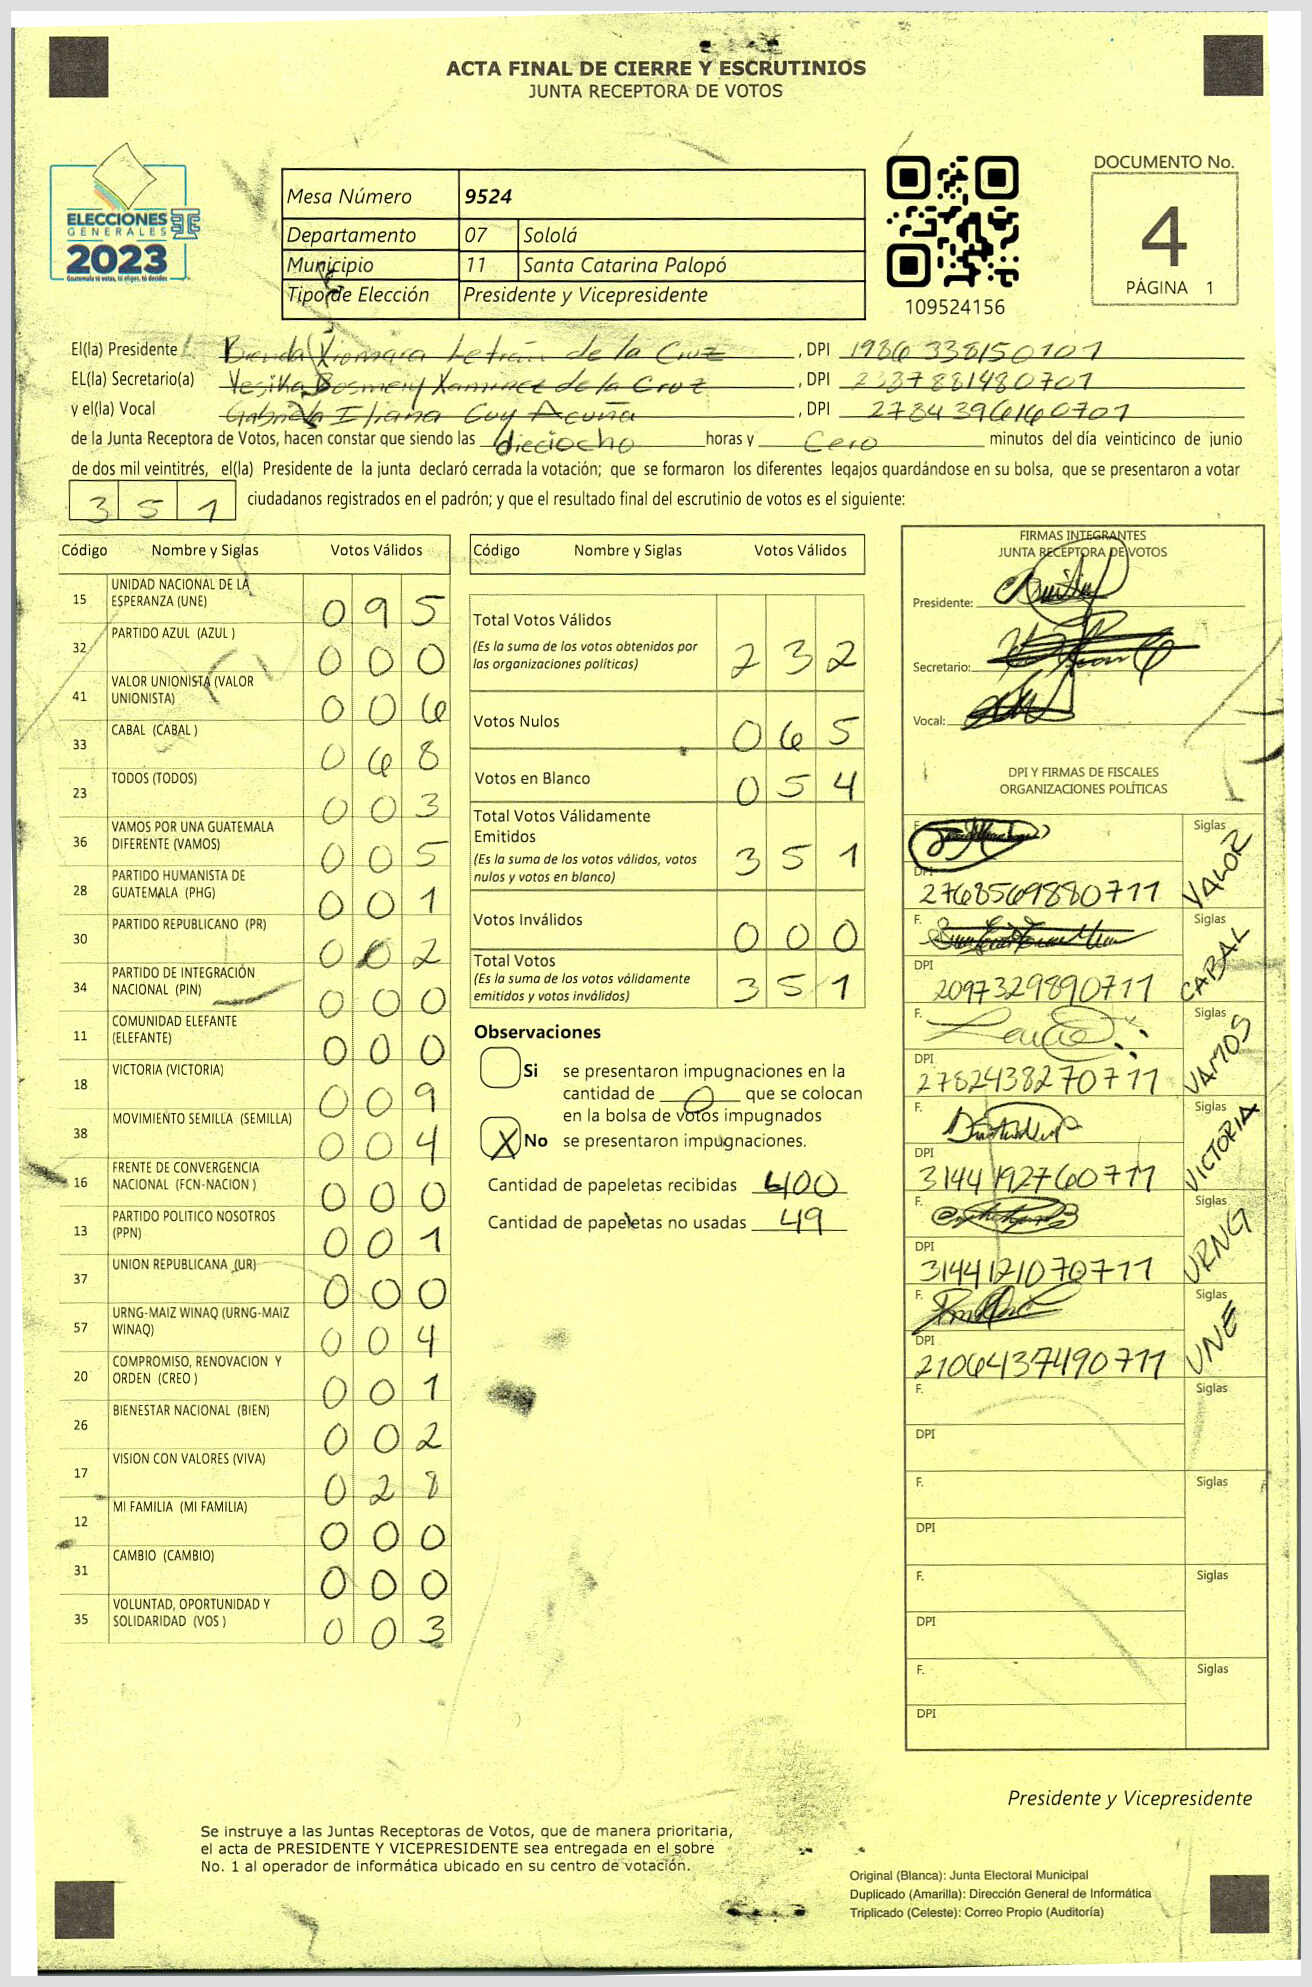 ACTA FINAL DE CIERRE Y ESCRUTINIOS
JUNTA RECEPTORA DE VOTOS
ELECCIONES
GENERALES
2023
Guatemala tú votas, tú eliges, tú decides
Mesa Número 9524
Departamento 07 Sololá
Municipio 11 Santa Catarina Palopó
Tipo de Elección Presidente y Vicepresidente
109524156
DOCUMENTO No.
4
PÁGINA 1
El(la) Presidente Xiomara de la Cruz , DPI 1986338150101
EL(la) Secretario(a) Yesika Rosmery de la Cruz , DPI 2337881480701
y el(la) Vocal Gabriela Iliana Cuy Acuña , DPI 2784396160701
de la Junta Receptora de Votos, hacen constar que siendo las dieciocho horas y Cero minutos del día veinticinco de junio
de dos mil veintitrés, el(la) Presidente de la junta declaró cerrada la votación; que se formaron los diferentes legajos guardándose en su bolsa, que se presentaron a votar
351 ciudadanos registrados en el padrón; y que el resultado final del escrutinio de votos es el siguiente:
Código Nombre y Siglas Votos Válidos
15 UNIDAD NACIONAL DE LA ESPERANZA (UNE) 095
32 PARTIDO AZUL (AZUL ) 000
41 VALOR UNIONISTA (VALOR UNIONISTA) 006
33 CABAL (CABAL ) 068
23 TODOS (TODOS) 003
36 VAMOS POR UNA GUATEMALA DIFERENTE (VAMOS) 005
28 PARTIDO HUMANISTA DE GUATEMALA (PHG) 001
30 PARTIDO REPUBLICANO (PR) 002
34 PARTIDO DE INTEGRACIÓN NACIONAL (PIN) 000
11 COMUNIDAD ELEFANTE (ELEFANTE) 000
18 VICTORIA (VICTORIA) 009
38 MOVIMIENTO SEMILLA (SEMILLA) 004
16 FRENTE DE CONVERGENCIA NACIONAL (FCN-NACION ) 000
13 PARTIDO POLITICO NOSOTROS (PPN) 001
37 UNION REPUBLICANA (UR) 000
57 URNG-MAIZ WINAQ (URNG-MAIZ WINAQ) 004
20 COMPROMISO, RENOVACION Y ORDEN (CREO ) 001
26 BIENESTAR NACIONAL (BIEN) 002
17 VISION CON VALORES (VIVA) 028
12 MI FAMILIA (MI FAMILIA) 000
31 CAMBIO (CAMBIO) 000
35 VOLUNTAD, OPORTUNIDAD Y SOLIDARIDAD (VOS ) 003
Código Nombre y Siglas Votos Válidos
Total Votos Válidos
(Es la suma de los votos obtenidos por
las organizaciones políticas) 232
Votos Nulos 065
Votos en Blanco 054
Total Votos Válidamente
Emitidos
(Es la suma de los votos válidos, votos
nulos y votos en blanco) 351
Votos Inválidos 000
Total Votos
(Es la suma de los votos válidamente
emitidos y votos inválidos) 351
Observaciones
Si se presentaron impugnaciones en la
cantidad de 0 que se colocan
en la bolsa de votos impugnados
X No se presentaron impugnaciones.
Cantidad de papeletas recibidas 400
Cantidad de papeletas no usadas 49
FIRMAS INTEGRANTES
JUNTA RECEPTORA DE VOTOS
Presidente:
Secretario:
Vocal:
DPI Y FIRMAS DE FISCALES
ORGANIZACIONES POLÍTICAS
F. Siglas VALOR
DPI 2768569880711
F. Siglas CABAL
DPI 2097329890711
F. Siglas VAMOS
DPI 2782438270711
F. Siglas VICTORIA
DPI 3144192760711
F. Siglas URNG
DPI 3144121070711
F. Siglas UNE
DPI 2106437490711
F. Siglas
DPI
F. Siglas
DPI
F. Siglas
DPI
F. Siglas
DPI
Presidente y Vicepresidente
Se instruye a las Juntas Receptoras de Votos, que de manera prioritaria,
el acta de PRESIDENTE Y VICEPRESIDENTE sea entregada en el sobre
No. 1 al operador de informática ubicado en su centro de votación.
Original (Blanca): Junta Electoral Municipal
Duplicado (Amarilla): Dirección General de Informática
Triplicado (Celeste): Correo Propio (Auditoría)